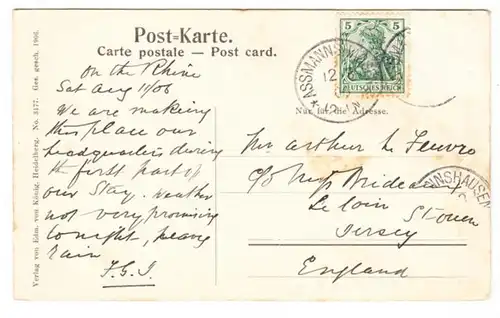 Post-Karte.
Carte postale — Post card.
Nur für die Adresse.
Verlag von Edm. von König, Heidelberg. No. 3177. Ges. gesch. 1906.
On the Rhine
Sat Aug 11/06
We are making
this place our
headquarters during
the first part of
our stay. Weather
not very promising
tonight, heavy
rain
F.G.J.
5 5
DEUTSCHES REICH
ASSMANNSHAUSEN
12
Mr Arthur Le Feuvre
c/o Mrs Brideaux
Le Coin
St Ouen
Jersey
England
NNSHAUSEN